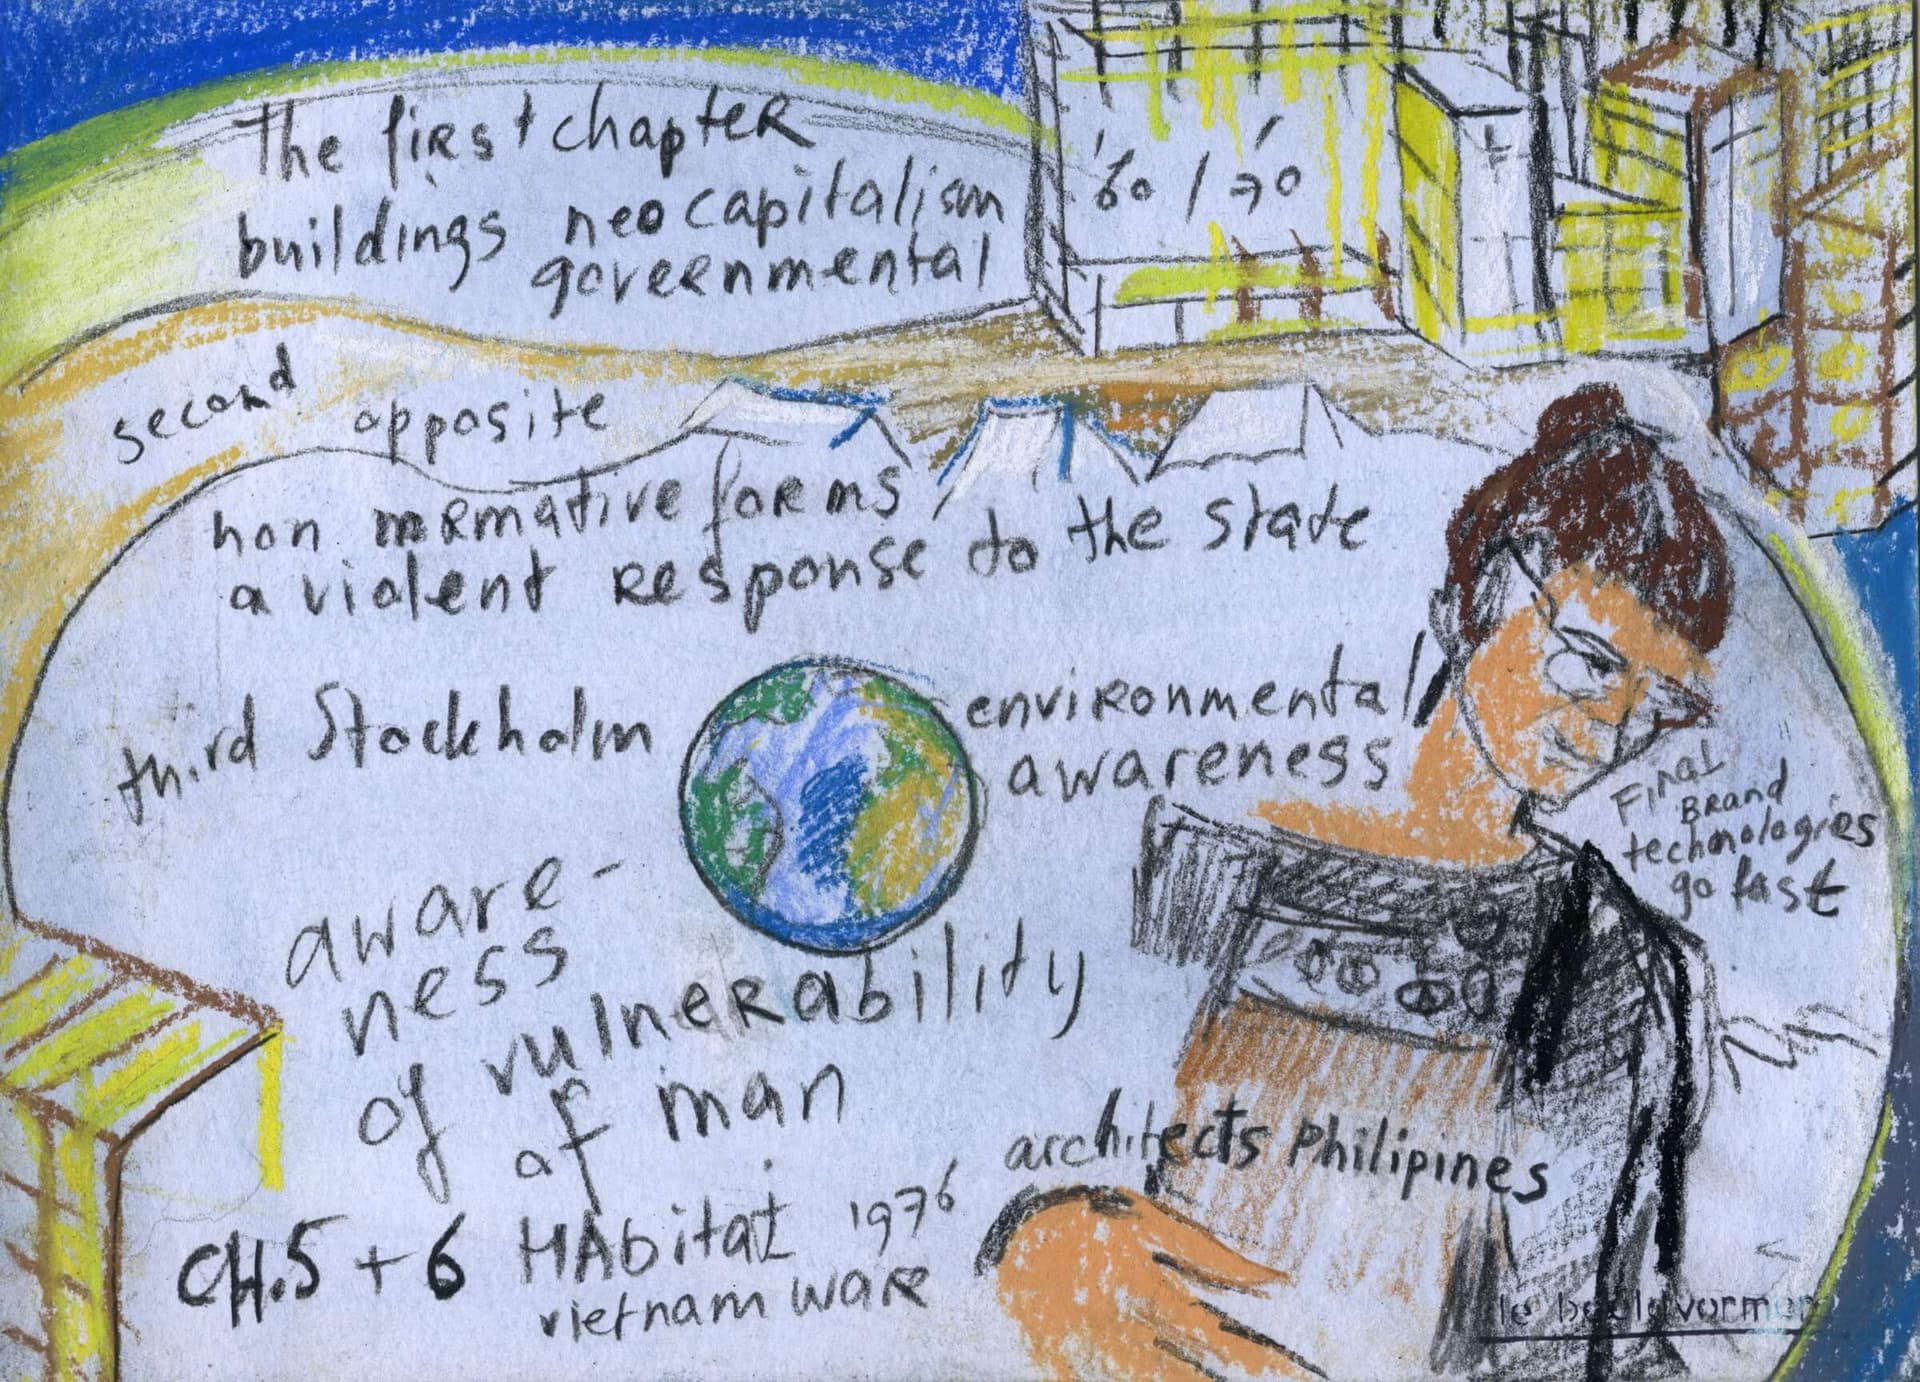 The first chapter
buildings neocapitalism
governmental
'60 / '70
second opposite
non normative forms,
a violent response to the state
third Stockholm
environmental
awareness
Final
Brand
technologies
go fast
aware-
ness
of vulnerability
of man
CH.5 + 6 HAbitat 1976
vietnam ware
architects Philipines